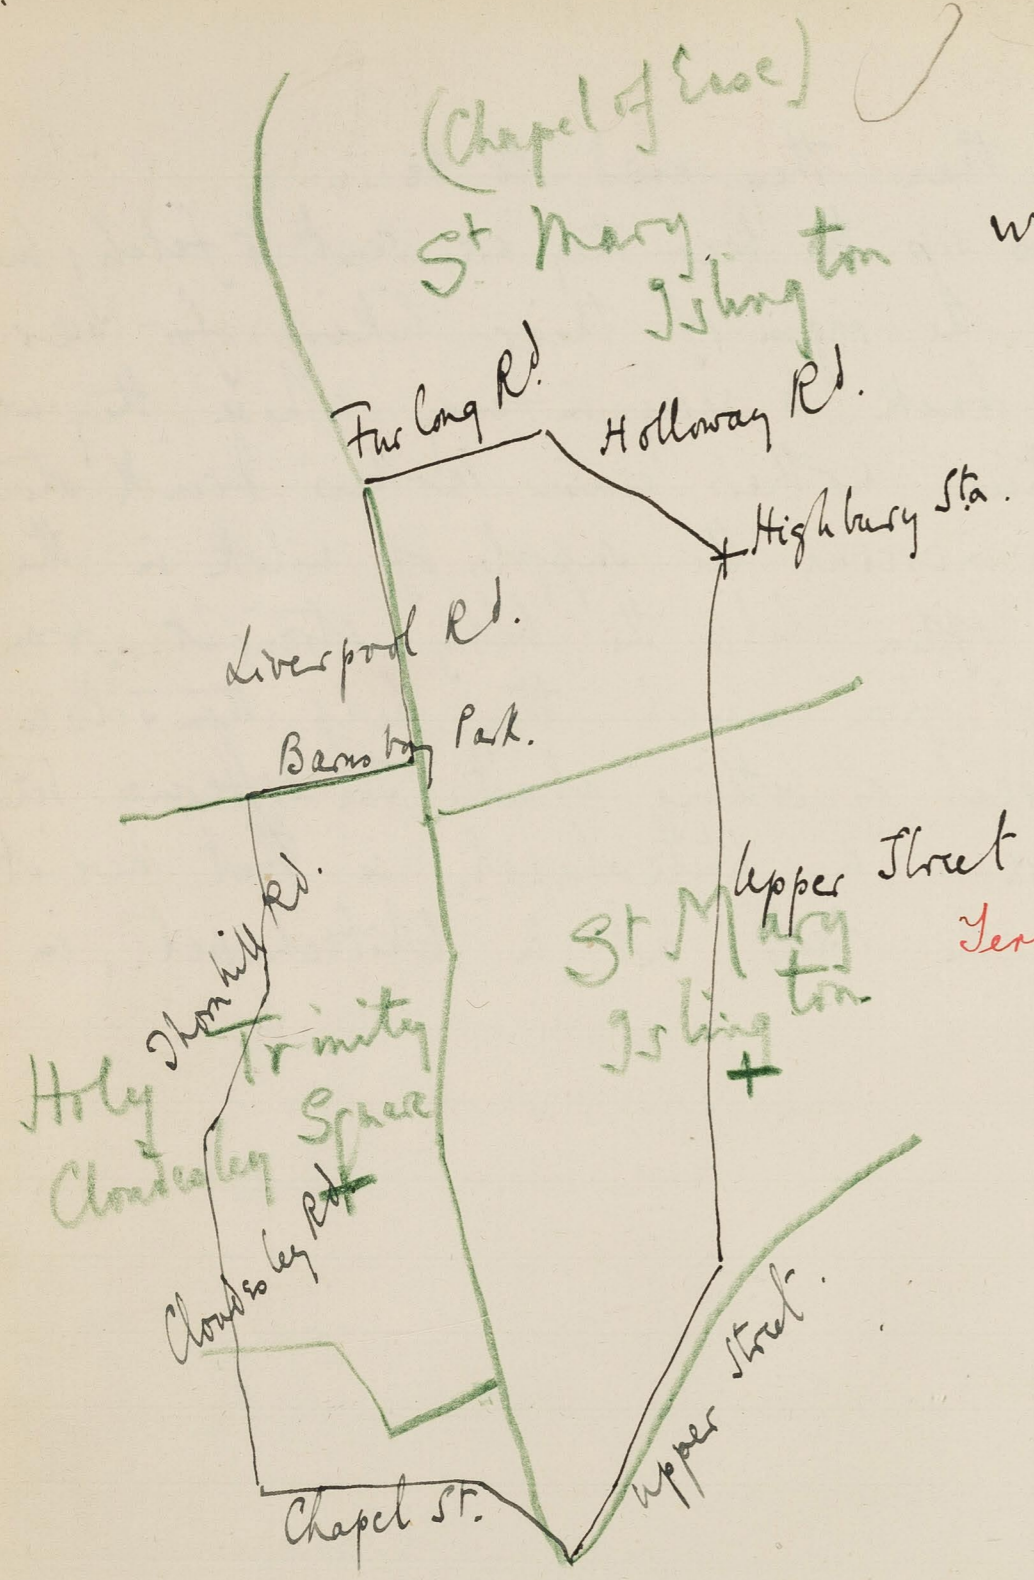 (Chapel of Ease)
St Mary
Islington
Furlong Rd.
Holloway Rd.
Highbury Sta.
Liverpool Rd.
Barnsbury Park.
Upper Street
Thornhill Rd.
St Mary
Islington
Holy Trinity
Cloudesley Square
Cloudesley Rd.
Upper Street.
Chapel St.